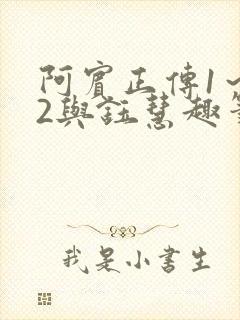 阿賓正傳1一
2與鈺慧趣事
我是小書生